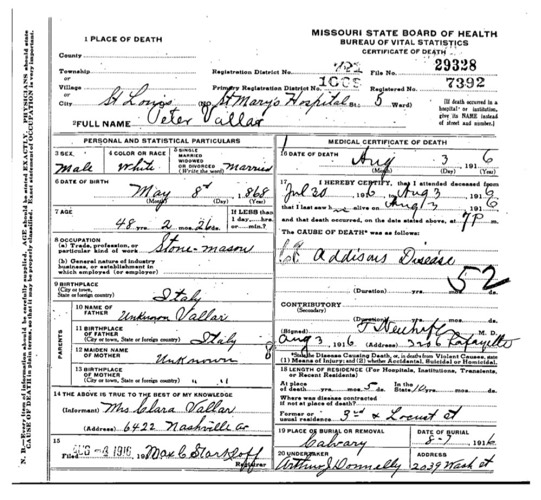 MISSOURI STATE BOARD OF HEALTH
BUREAU OF VITAL STATISTICS
CERTIFICATE OF DEATH
1 PLACE OF DEATH
County
Township
or
Village
or
City St Louis (No. St Mary's Hospital St. 5 Ward)
Registration District No. 791 File No. 29328
Primary Registration District No. 1003 Registered No. 7392
(If death occurred in a hospital or institution, give its NAME instead of street and number.)
2 FULL NAME Peter Vallar
PERSONAL AND STATISTICAL PARTICULARS
3 SEX Male
4 COLOR OR RACE White
5 SINGLE MARRIED WIDOWED OR DIVORCED (Write the word) Married
6 DATE OF BIRTH May 8 1868
(Month) (Day) (Year)
7 AGE 48 yrs. 2 mos. 26 ds.
If LESS than 1 day, hrs. or min.?
8 OCCUPATION
(a) Trade, profession, or particular kind of work Stone-mason
(b) General nature of industry business, or establishment in which employed (or employer)
9 BIRTHPLACE
(City or town, State or foreign country) Italy
PARENTS
10 NAME OF FATHER Unknown Vallar
11 BIRTHPLACE OF FATHER
(City or town, State or foreign country) Italy
12 MAIDEN NAME OF MOTHER Unknown
13 BIRTHPLACE OF MOTHER
(City or town, State or foreign country) " "
14 THE ABOVE IS TRUE TO THE BEST OF MY KNOWLEDGE
(Informant) Mrs Clara Vallar
(Address) 6422 Nashville Av
15
Filed AUG -4 1916, 191 Max C Starkloff
Registrar
MEDICAL CERTIFICATE OF DEATH
16 DATE OF DEATH Aug 3 1916
(Month) (Day) (Year)
17 I HEREBY CERTIFY, that I attended deceased from
Jul 30 1916 Aug 3 1916
that I last saw h alive on Aug 3 1916
and that death occurred, on the date stated above, at 7 P m.
The CAUSE OF DEATH* was as follows:
Addisons Disease
52
(Duration) yrs. mos. ds.
CONTRIBUTORY
(Secondary)
(Duration) yrs. mos. ds.
(Signed) M. D.
Aug 3, 1916 (Address) Lafayette
*State the Disease Causing Death, or, in deaths from Violent Causes, state (1) Means of Injury; and (2) whether Accidental, Suicidal or Homicidal.
18 LENGTH OF RESIDENCE (For Hospitals, Institutions, Transients, or Recent Residents)
At place of death yrs. mos. 5 ds. In the State 10 yrs. mos. ds.
Where was disease contracted if not at place of death?
Former or usual residence 3rd & Locust St
19 PLACE OF BURIAL OR REMOVAL Calvary
DATE OF BURIAL 8-7 1916
20 UNDERTAKER Arthur J Donnelly
ADDRESS 2039 Wash St
N. B.—Every item of information should be carefully supplied. AGE should be stated EXACTLY. PHYSICIANS should state
CAUSE OF DEATH in plain terms, so that it may be properly classified. Exact statement of OCCUPATION is very important.